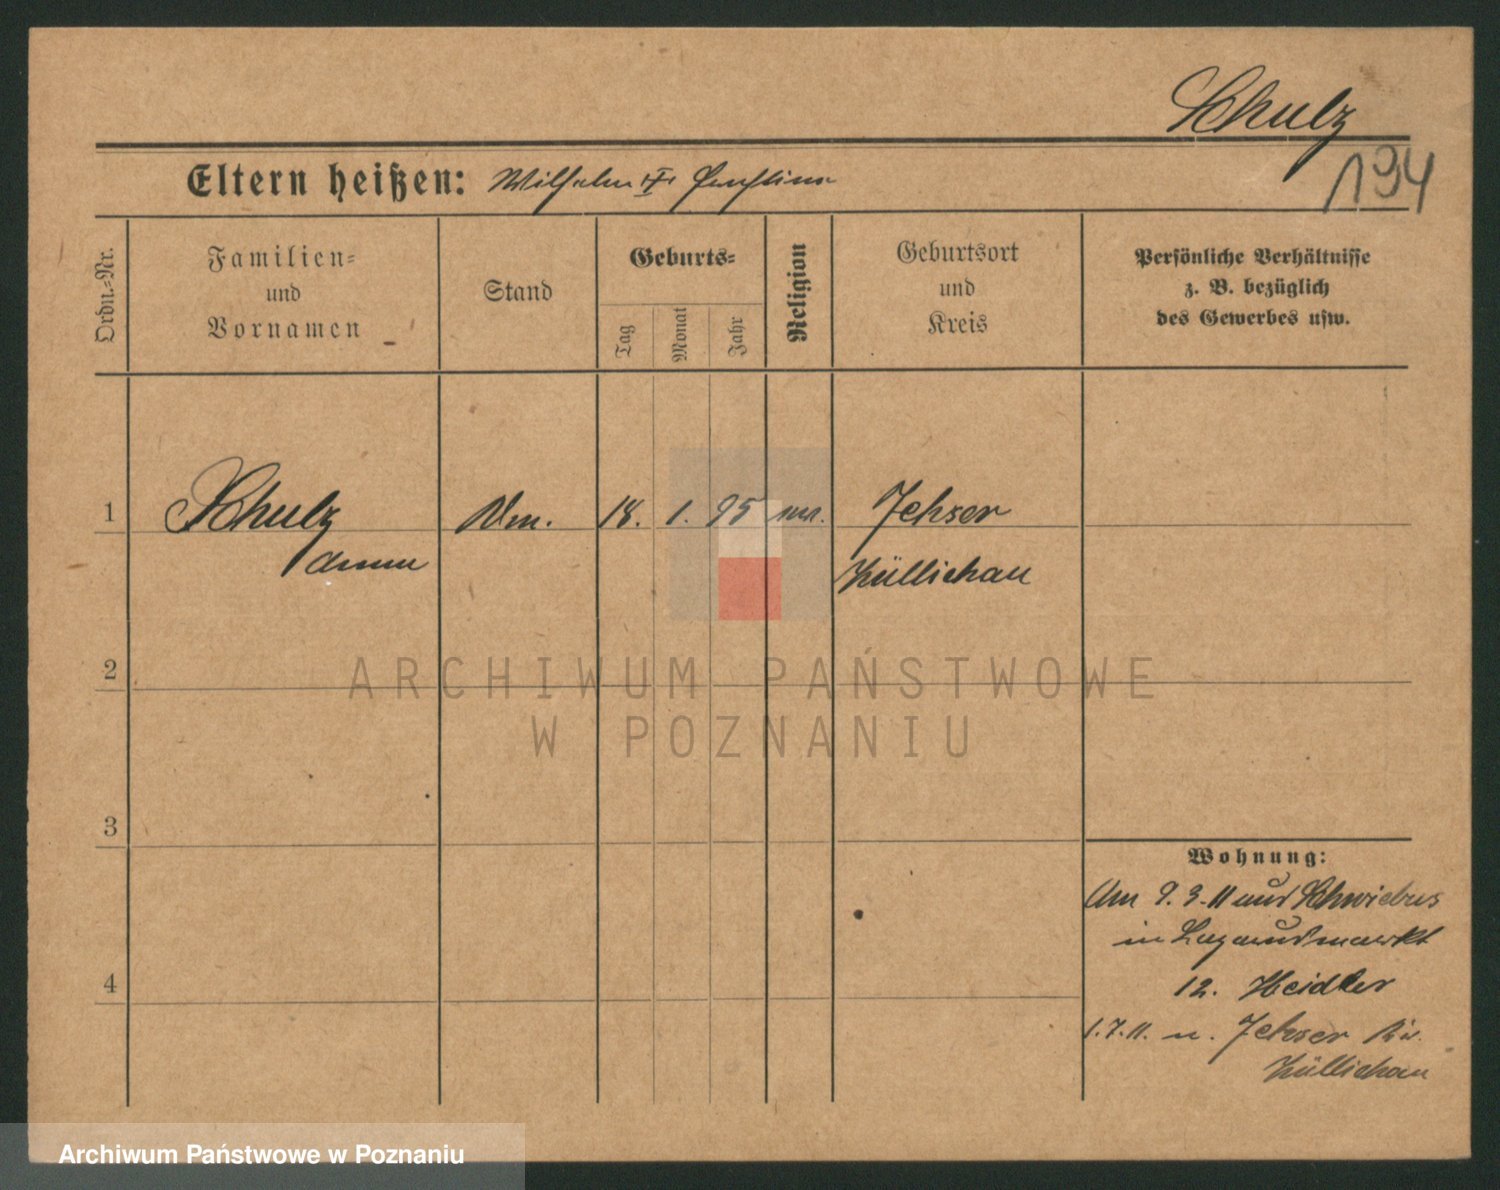 Schulz
194
Eltern heißen: Wilhelm
Ordn.-Nr.
Familien-
und
Vornamen
Stand
Geburts-
Tag
Monat
Jahr
Religion
Geburtsort
und
Kreis
Persönliche Verhältnisse
z. B. bezüglich
des Gewerbes usw.
1 Schulz 18. 1. 95 Jehser
Anna Züllichau
2
ARCHIWUM PAŃSTWOWE
W POZNANIU
3
Wohnung:
Am 9.3.11 aus Schwiebus
in
4
12. Heidler
1.7.11. n. Jehser Kr.
Züllichau
Archiwum Państwowe w Poznaniu